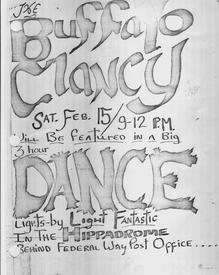 Buffalo
Clancy
SAT. FEB. 15/9-12 P.M.
Will BE FEATURED IN A BIG
3 hour
DANCE
LIGHTS-by Light FANTASTIC
IN THE HIPPADROME
BEHIND FEDERAL WAY POST OFFICE.....